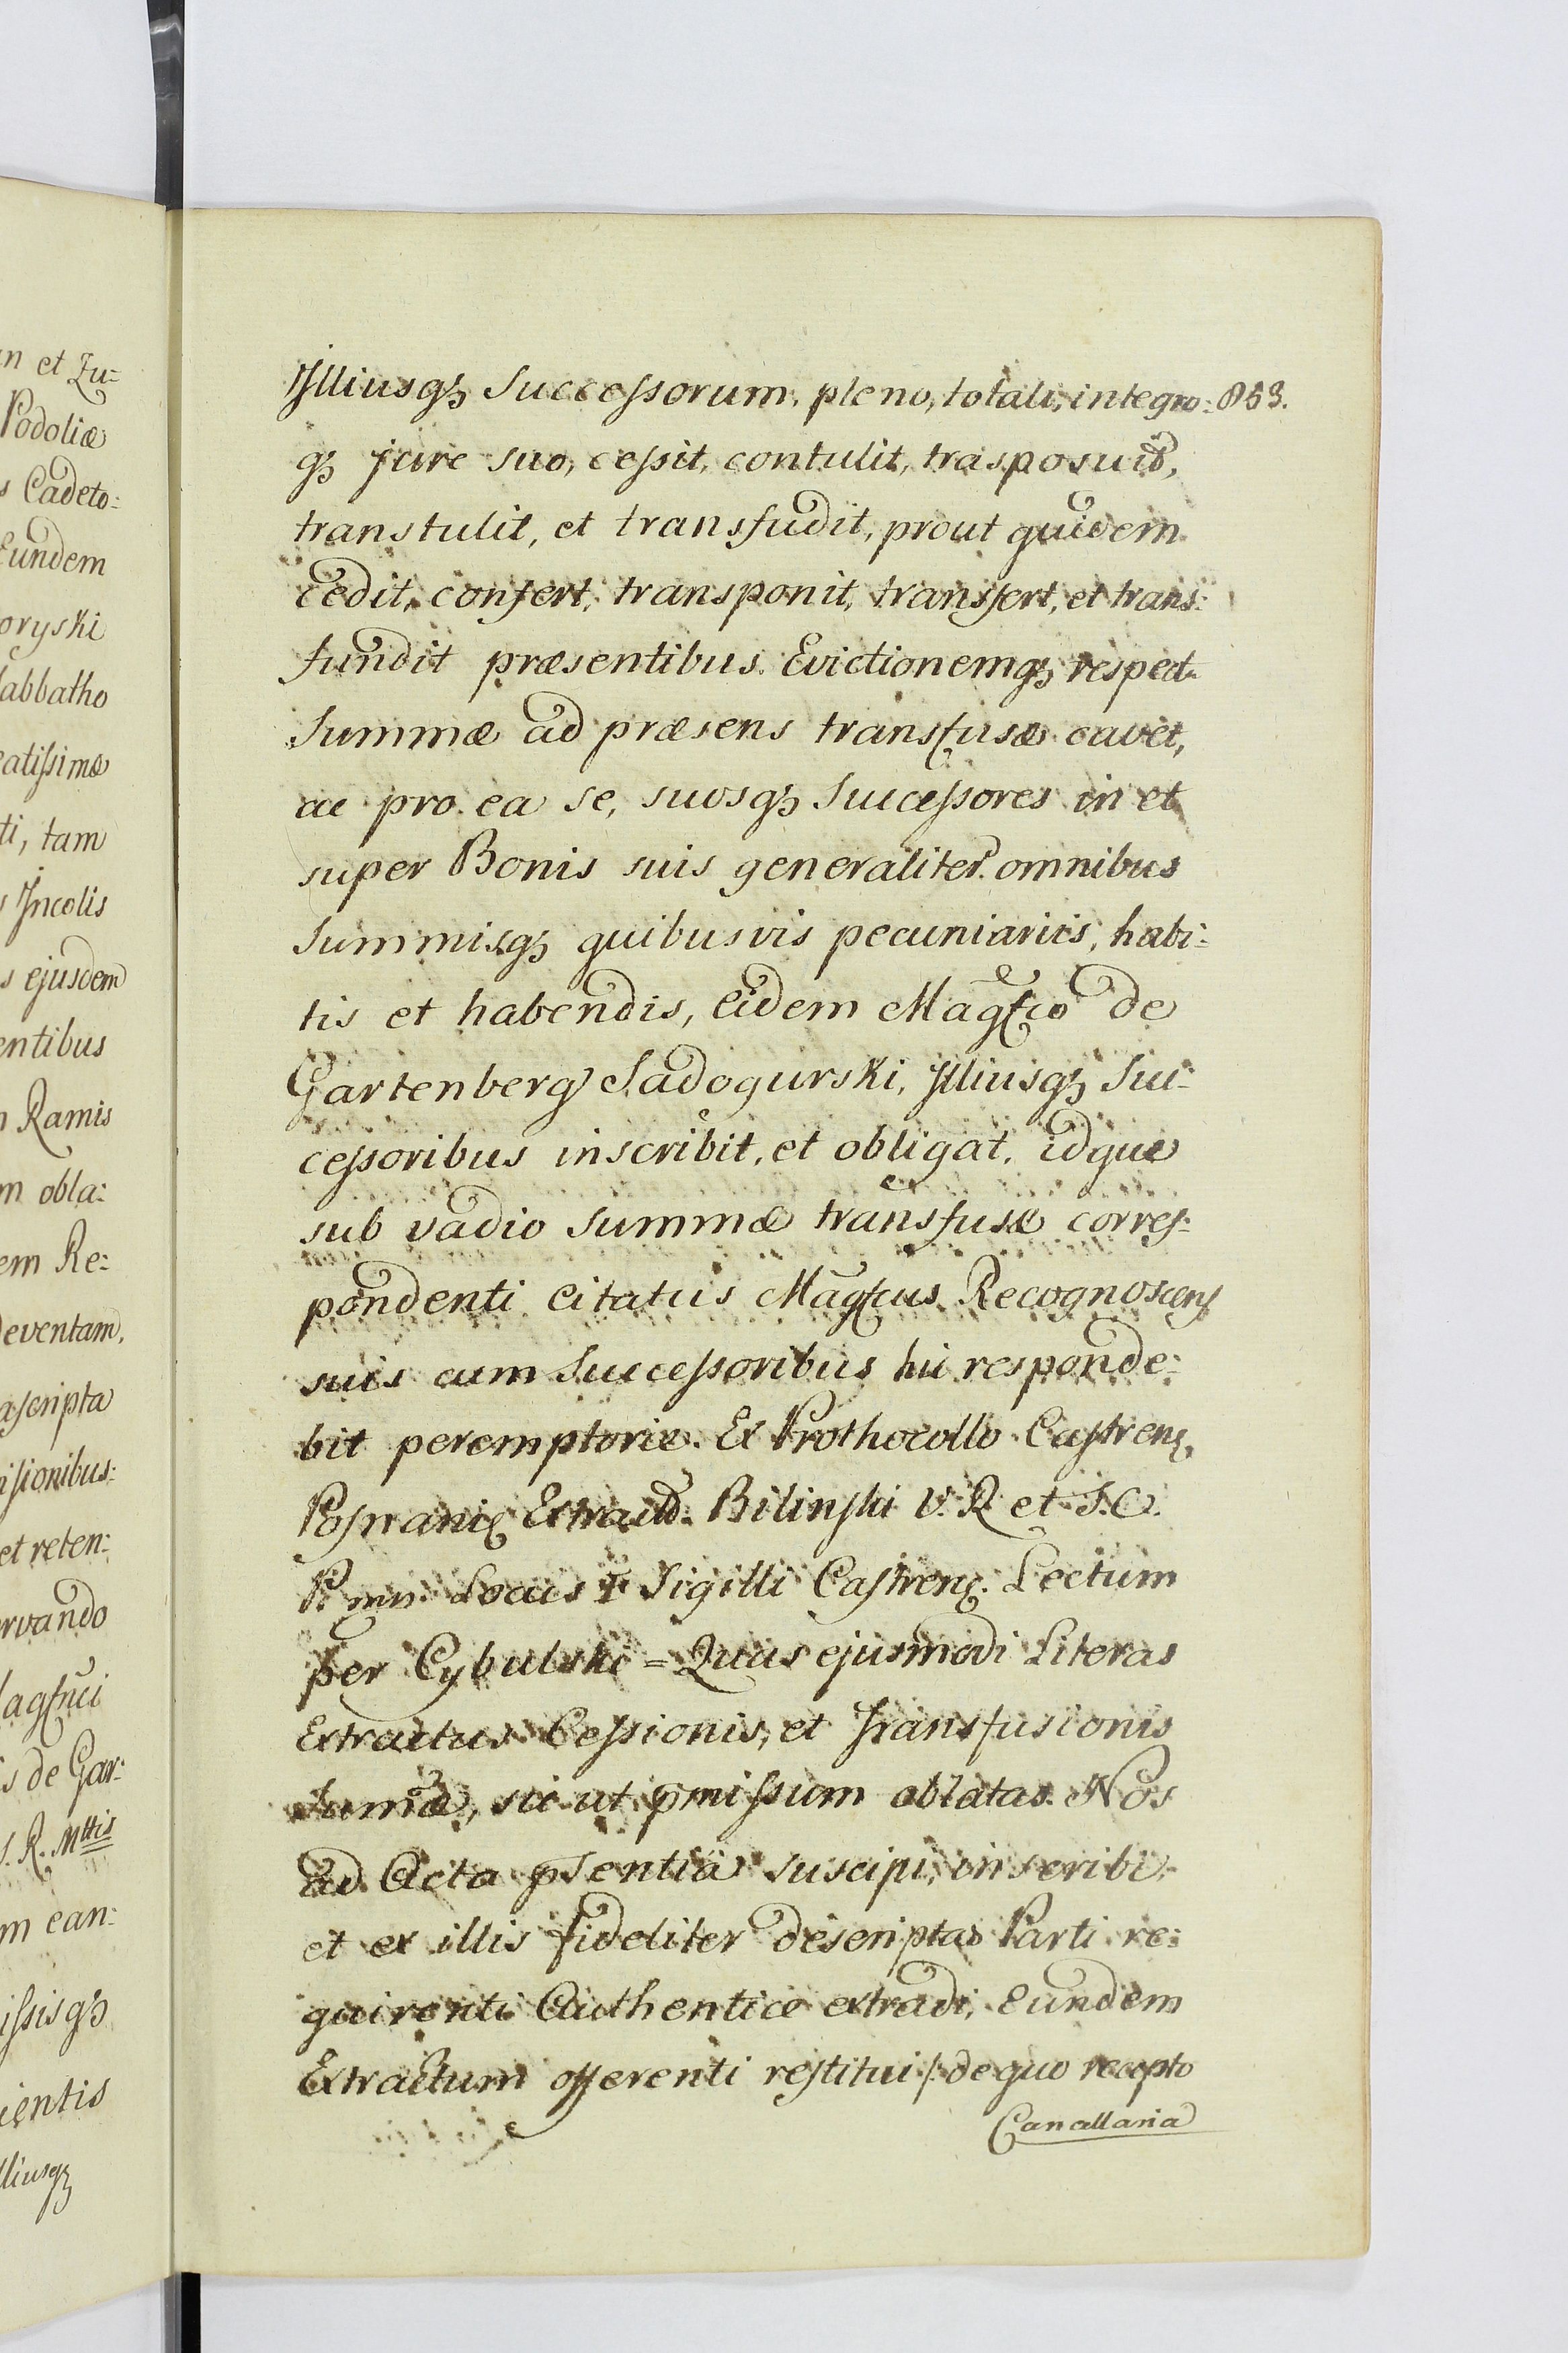 n et Zu=
Podoliæ
s Cadeto:
Eundem
oryski
Sabbatho
catiſsimæ
ti, tam
s Jncolis
s ejusdem
entibus
n Ramis
m obla:
em Re:
deventam,
aſcripta
iſionibus:
et reten:
ervando
agſnci
s de Gar:
S. R. Mttis
m ean:
iſsisqȝ
ientis
lliusqȝ
Jlliusqȝ Succeſsorum, pleno, totali, integro= 853.
qȝ jure suo, ceſsit, contulit, trasposuit,
transtulit, et transfudit, prout quidem
cedit, confert, transponit, transfert, et trans:
fundit præsentibus. Evictionemqȝ respect.
Summæ ad præsens transfusæ cavet,
ac pro ea se, suosqȝ Succeſsores in et
super Bonis suis generaliter omnibus
Summisqȝ quibusvis pecuniariis, habi:
tis et habendis, Eidem Magſco de
Gartenberg Sadogurski, Jlliusqȝ Suc:
ceſsoribus inscribit, et obligat, idque
sub vadio Summæ transfusæ correſ:
pondenti citatus Magſcus Recognoscenſ
suis cum Succeſsoribus hic responde:
bit peremptorie. Ex Prothocollo Caſtrenſ.
Poſnanieſ Extract. Bilinſki V. R. et J. C.
P. mn. Locus Sigilli Caſtrenſ. Lectum
per Cybulski = Quas ejusmodi Literas
Extractus Ceſsionis, et Transfusionis
Sum̃æ, sic ut p̃miſsum oblatas Nos
ad Acta p̃sentia suscipi, inscribi,
et ex illis fideliter descriptas Parti re:
quirenti Authentice extradi, Eundem
Extractum offerenti reſtitui /: de quo recepto
Cancellaria